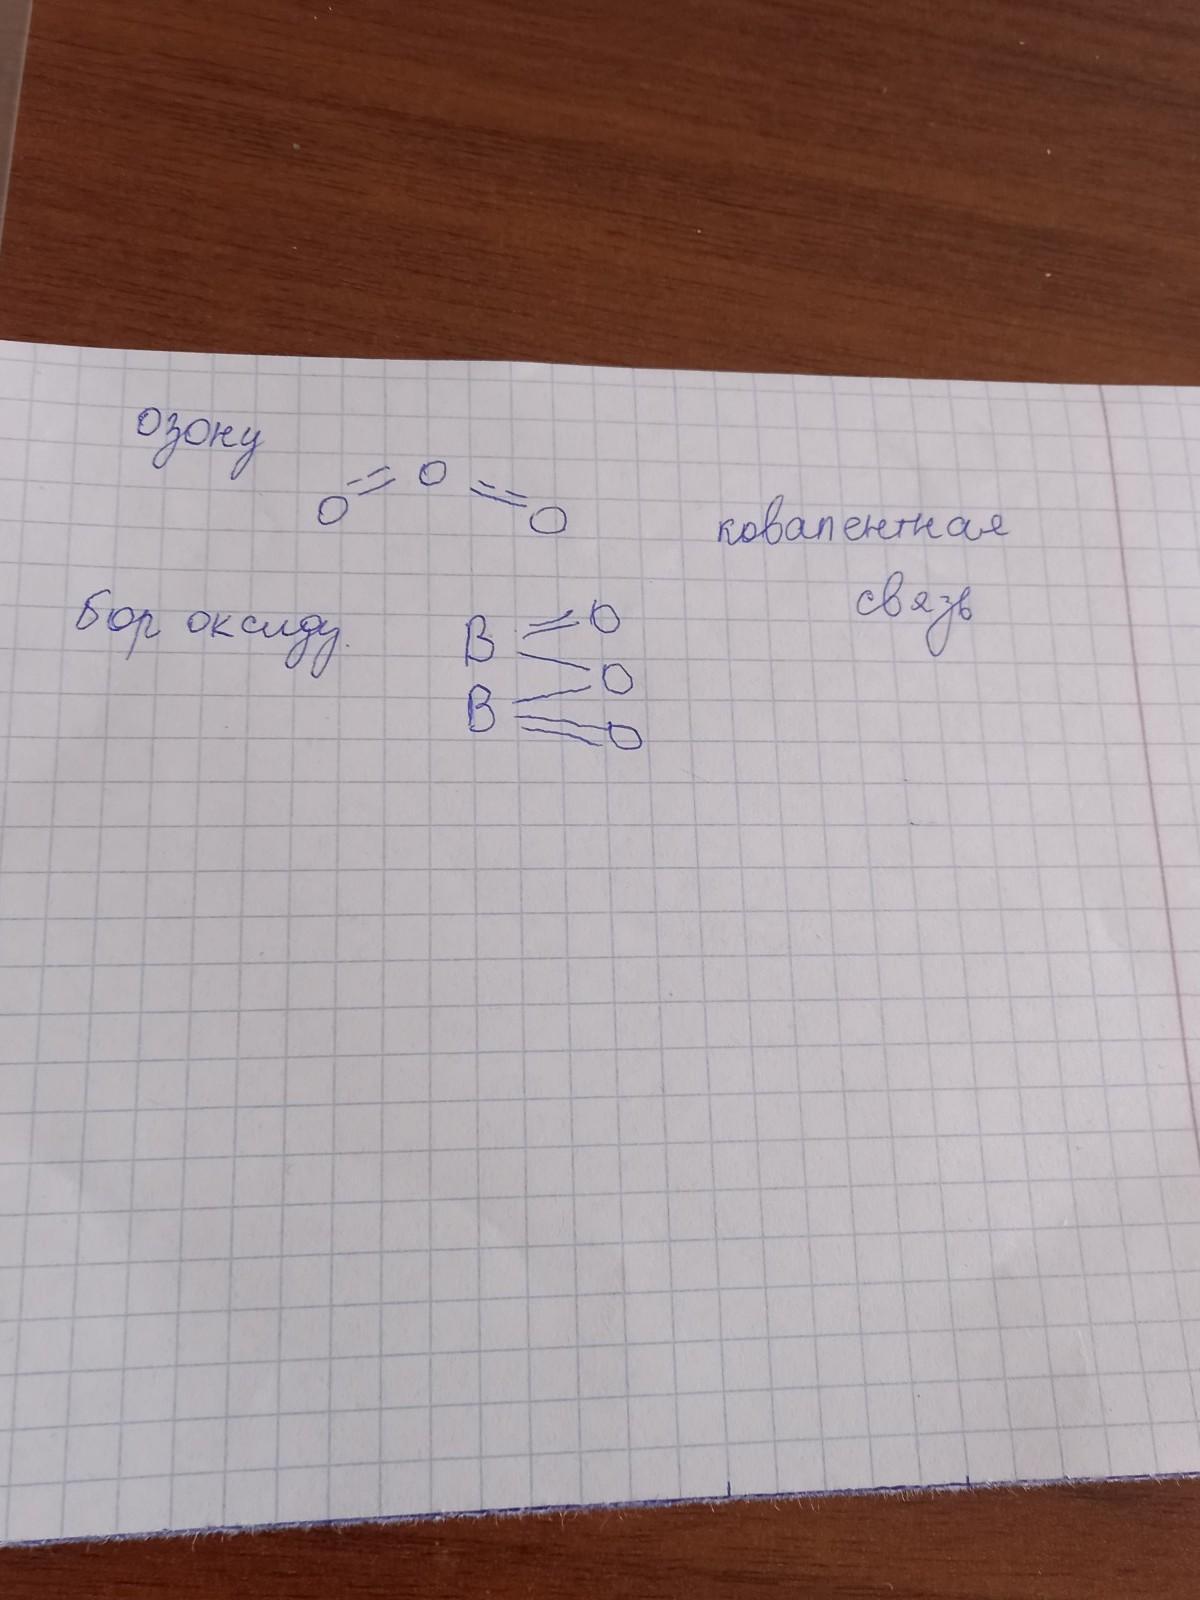 озону
O = O = O
ковалентная
связь
бор оксиду.
B = O
O
B = O